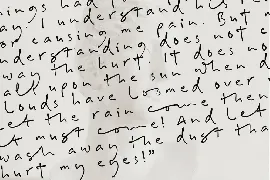 ings had
ay. I understand his
or causing me pain. But
nderstanding does not e
way the hurt. It does no
all upon the sun when d
louds have loomed over
et the rain come then
t must come! And let
wash away the dust tha
hurt my eyes!"